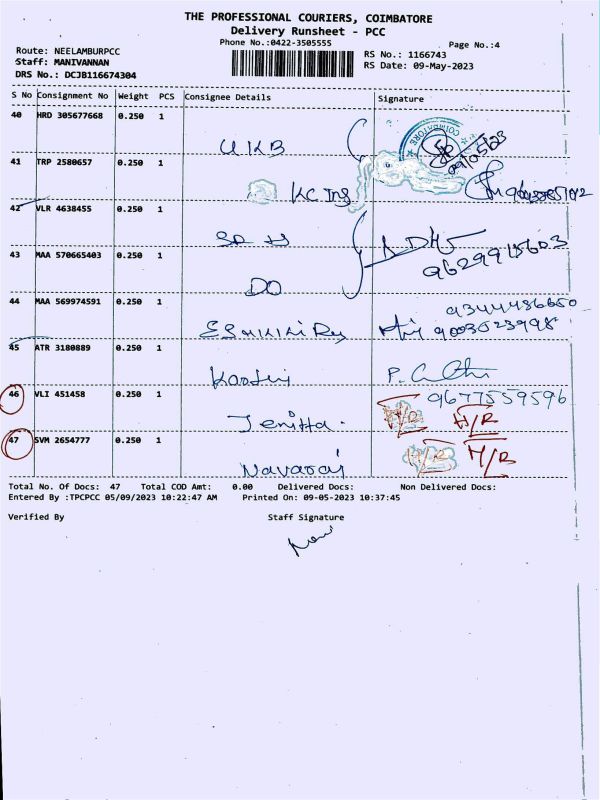 THE PROFESSIONAL COURIERS, COIMBATORE
Delivery Runsheet - PCC
Phone No.:0422-3505555
Page No.:4
Route: NEELAMBURPCC
Staff: MANIVANNAN
DRS No.: DCJB116674304
RS No.: 1166743
RS Date: 09-May-2023
S No Consignment No Weight PCS Consignee Details Signature
40 HRD 305677668 0.250 1
UKB
COIMBATORE
09/05/23
41 TRP 2580657 0.250 1
KC Ing
42 VLR 4638455 0.250 1
43 MAA 570665403 0.250 1
DO
44 MAA 569974591 0.250 1
9344486650
45 ATR 3180889 0.250 1
46 VLI 451458 0.250 1
9677559596
Jenitta. H/R H/R
47 SVM 2654777 0.250 1
Navaraj
Total No. Of Docs: 47 Total COD Amt: 0.00 Delivered Docs: Non Delivered Docs:
Entered By :TPCPCC 05/09/2023 10:22:47 AM Printed On: 09-05-2023 10:37:45
Verified By Staff Signature